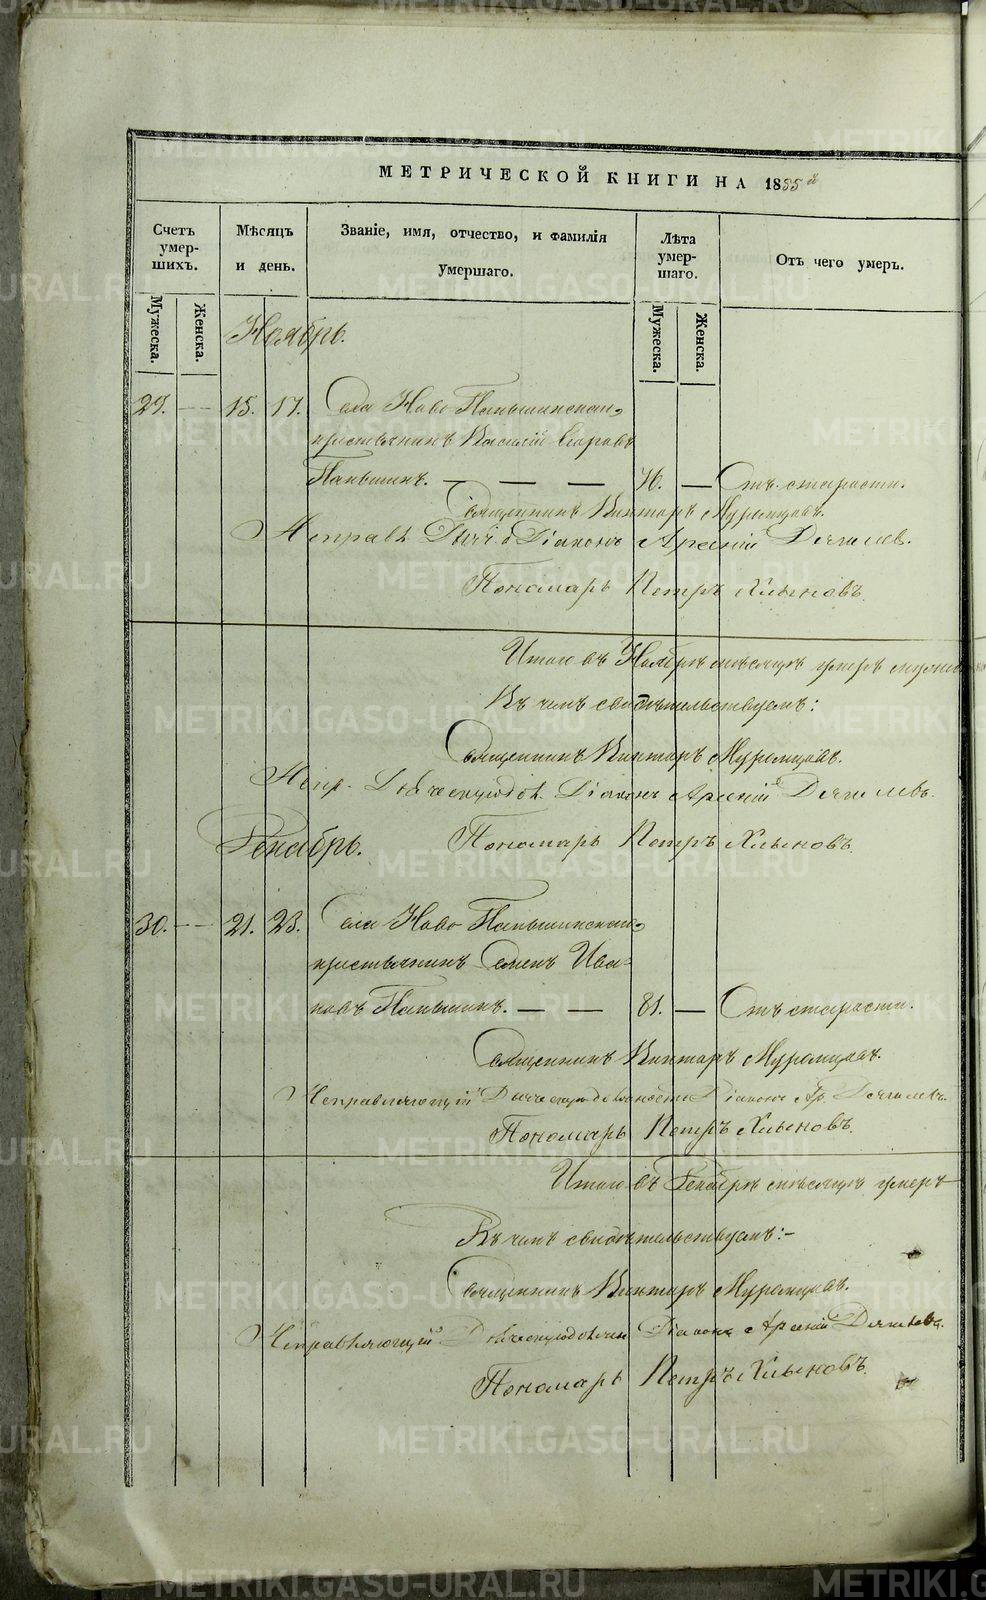 МЕТРИЧЕСКОЙ КНИГИ НА 1855й
Счетъ умер-шихъ.
Мѣсяцъ и день.
Званіе, имя, отчество, и фамилія умершаго.
Лѣта умер-шаго.
Отъ чего умеръ.
Мужеска.
Женска.
Мужеска.
Женска.
Ноябрь.
29. — 15. 17. Села Ново Паньшинскаго
крестьянинъ Василій Егоровъ
Паньшинъ. — — — 76. — Отъ старости.
Священникъ Викторъ Муромцовъ.
Исправл. Діаконъ Арсеній
Пономарь Петръ Хлыновъ.
Итого въ Ноябрѣ мѣсяцѣ умеръ
Въ чемъ свидѣтельствуемъ:
Священникъ Викторъ Муромцовъ.
Испр. Діаконъ Арсеній
Пономарь Петръ Хлыновъ.
Декабрь.
30. — 21. 23. Села Ново Паньшинскаго
крестьянинъ Семенъ Ива-
новъ Паньшинъ. — — 81. — Отъ старости.
Священникъ Викторъ Муромцовъ.
Исправляющій Діаконъ Ар.
Пономарь Петръ Хлыновъ.
Итого въ Декабрѣ мѣсяцѣ умеръ
Въ чемъ свидѣтельствуемъ:-
Священникъ Викторъ Муромцовъ.
Исправляющій Діаконъ Арсеній
Пономарь Петръ Хлыновъ.
METRIKI.GASO-URAL.RU